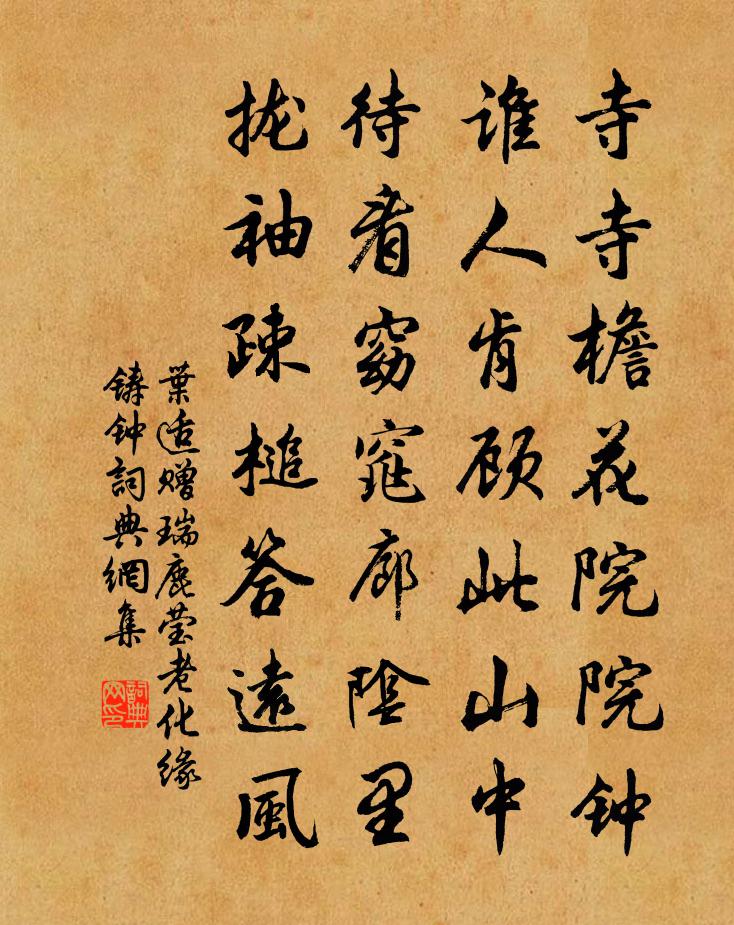 寺寺檐花院院钟
谁人肯顾此山中
待看窈窕廊阴里
拢袖疎槌答远風
葉适赠瑞鹿莹老化缘
铸钟詞典網集
詞典
网印